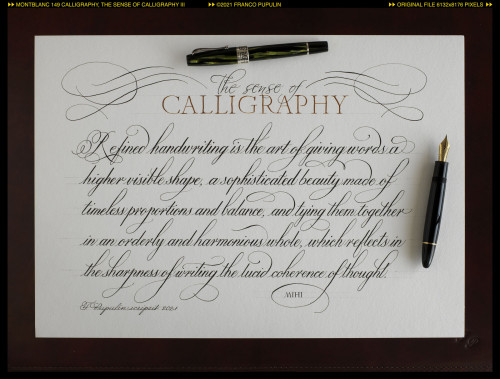 MONTBLANC 149 CALLIGRAPHY, THE SENSE OF CALLIGRAPHY III ©2021 FRANCO PUPULIN ORIGINAL FILE 6132x8176 PIXELS
The sense of
CALLIGRAPHY
Refined handwriting is the art of giving words a
higher visible shape, a sophisticated beauty made of
timeless proportions and balance, and tying them together
in an orderly and harmonious whole, which reflects in
the sharpness of writing the lucid coherence of thought.
MIHI
F. Pupulin scripsit 2021